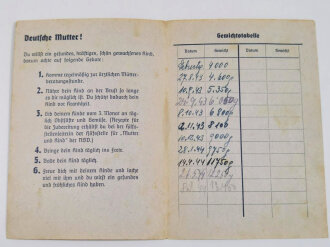 Deutsche Mutter!
Du willst ein gesundes, kräftiges, schön gewachsenes Kind,
darum achte auf folgende Gebote:
1. Komme regelmäßig zur ärztlichen Mütter-
beratungsstunde.
2. Nähre dein Kind an der Brust so lange
es dir möglich ist. Du schützt dadurch dein Kind
vor Krankheit.
3. Gib deinem Kinde vom 3. Monat an täg-
lich Obstsäfte und Gemüse. (Rezepte
für die Zubereitung erhältst du bei der Hilfs-
stellenleiterin der Hilfsstelle für „Mutter
und Kind“ der NSV.)
4. Bringe dein Kind täglich ins Freie.
5. Bade dein Kind täglich.
6. Freue dich mit deinem Kinde und lache
viel mit ihm und du wirst ein gesundes und
fröhliches Kind haben.
Gewichtstabelle
Datum Gewicht Datum Gewicht
Geburtstag 4000
27.8.43 4.600g
10.9.43 5.350g
24.9.43
8.10.43 6800g
2.11.43 8100
10.12.43 9000g
28.1.44 9750g
14.4.44 11750g